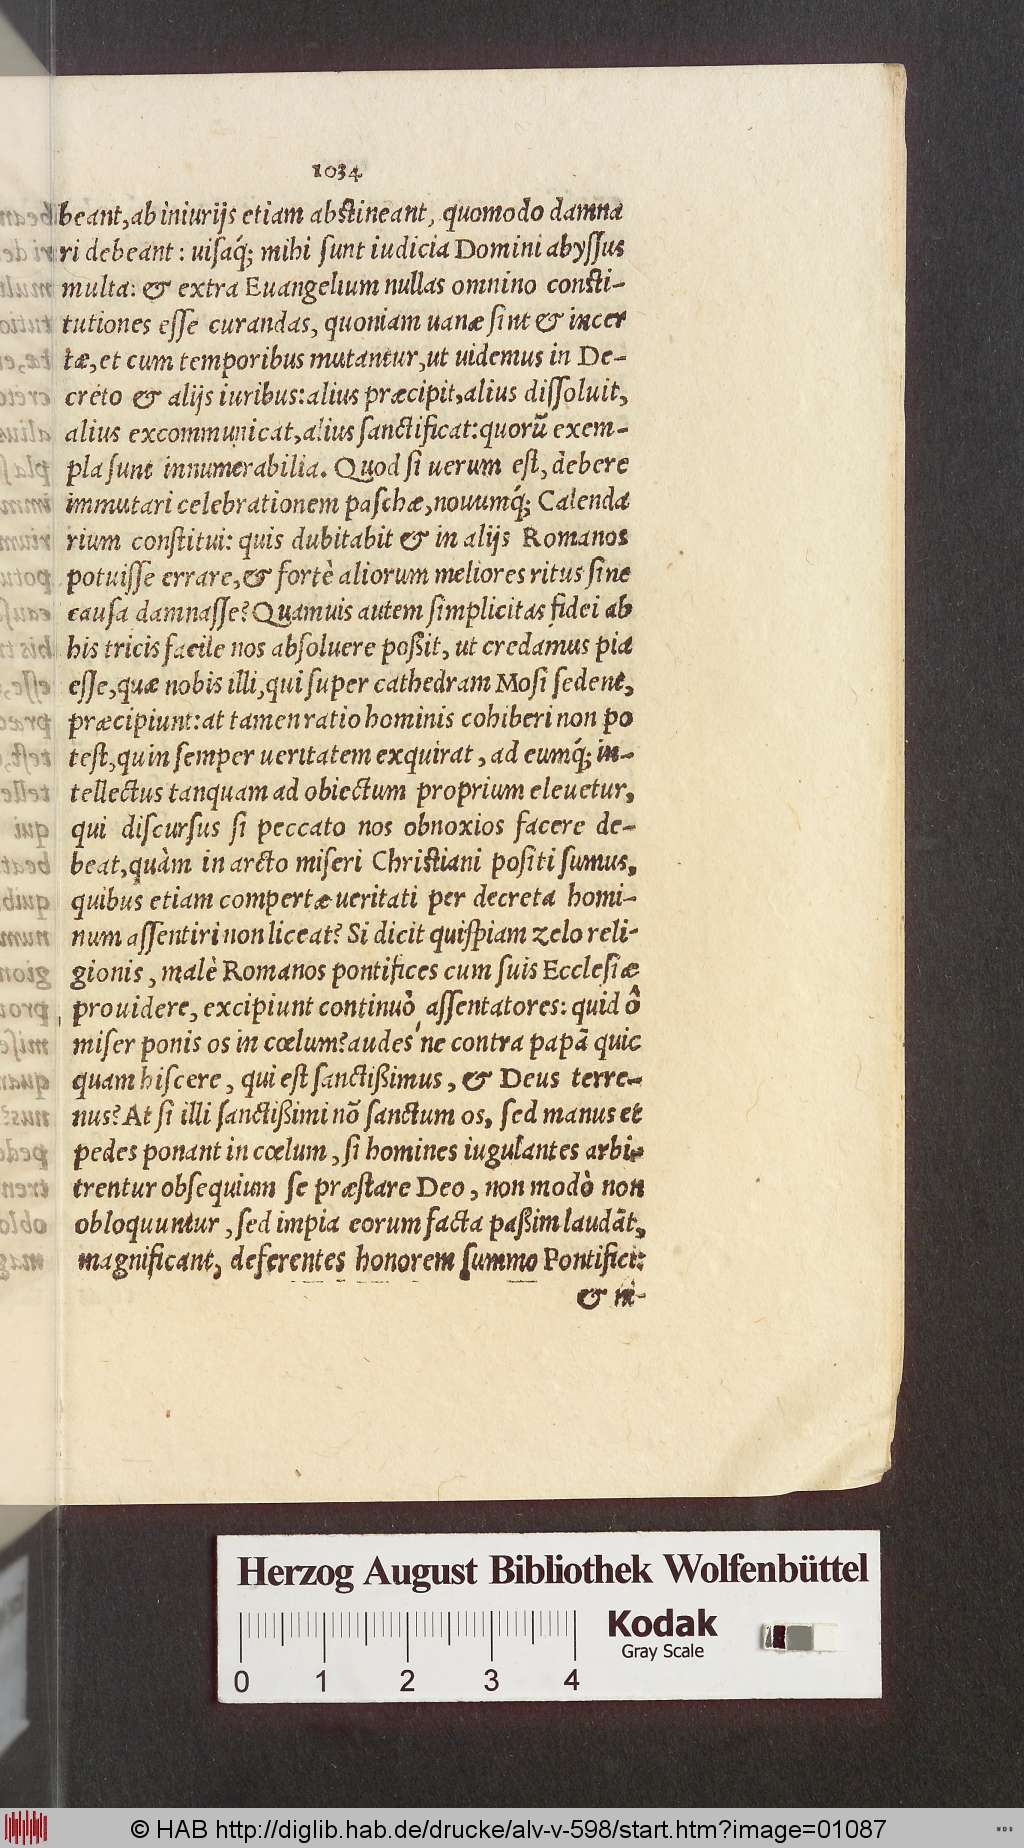 1034
beant, ab iniurijs etiam abstineant, quomodo damna
ri debeant: uisaq́; mihi sunt iudicia Domini abyssus
multa: & extra Euangelium nullas omnino consti-
tutiones esse curandas, quoniam uanæ sint & incer
tæ, et cum temporibus mutantur, ut uidemus in De-
creto & alijs iuribus: alius præcipit, alius dissoluit,
alius excommunicat, alius sanctificat: quorũ exem-
pla sunt innumerabilia. Quod si uerum est, debere
immutari celebrationem paschæ, nouumq́; Calenda
rium constitui: quis dubitabit & in alijs Romanos
potuisse errare, & fortè aliorum meliores ritus sine
causa damnasse? Quamuis autem simplicitas fidei ab
his tricis facile nos absoluere poßit, ut credamus pia
esse, quæ nobis illi, qui super cathedram Mosi sedent,
præcipiunt: at tamen ratio hominis cohiberi non po
test, quin semper ueritatem exquirat, ad eumq́; in-
tellectus tanquam ad obiectum proprium eleuetur,
qui discursus si peccato nos obnoxios facere de-
beat, quàm in arcto miseri Christiani positi sumus,
quibus etiam compertæ ueritati per decreta homi-
num assentiri non liceat? Si dicit quispiam zelo reli-
gionis, malè Romanos pontifices cum suis Ecclesiæ
prouidere, excipiunt continuò assentatores: quid ô
miser ponis os in cœlum? audes'ne contra papã quic
quam hiscere, qui est sanctißimus, & Deus terre-
nus? At si illi sanctißimi nõ sanctum os, sed manus et
pedes ponant in cœlum, si homines iugulantes arbi-
trentur obsequium se præstare Deo, non modò non
obloquuntur, sed impia eorum facta paßim laudãt,
magnificant, deferentes honorem summo Pontifici:
& in-
Herzog August Bibliothek Wolfenbüttel
Kodak
Gray Scale
0 1 2 3 4
© HAB http://diglib.hab.de/drucke/alv-v-598/start.htm?image=01087